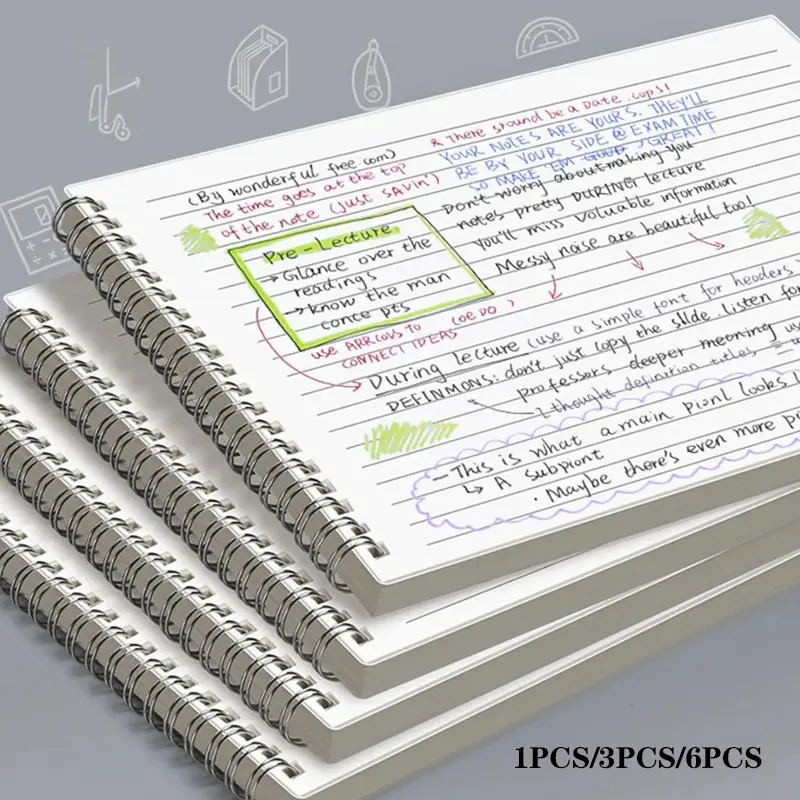 (By wonderful free.com)
The time goes at the top
of the note (just SAVin')
& There sround be a Date .cops!
YOUR NOTES ARE YOURS. THEY'LL
BE BY YOUR SIDE @ EXAM TIME
SO MAKE 'EM GOOD, GREAT!
Don't worry about making you
notes pretty DURING lecture
You'll miss valuable information
Messy noise are beautiful too!
Pre-Lecture
→Glance over the
readings
→know the man
conce pts
use ARRCOVS TO (OEDO)
CONNECT IDEAS
During lecture (use a simple font for headers
DEFINMONS: don't just copy the slide listen for
professors deeper meoning use
I thought definition titles =
—This is what a main pionl looks l
↳ A subpiont
·Maybe there's even more p
1PCS/3PCS/6PCS